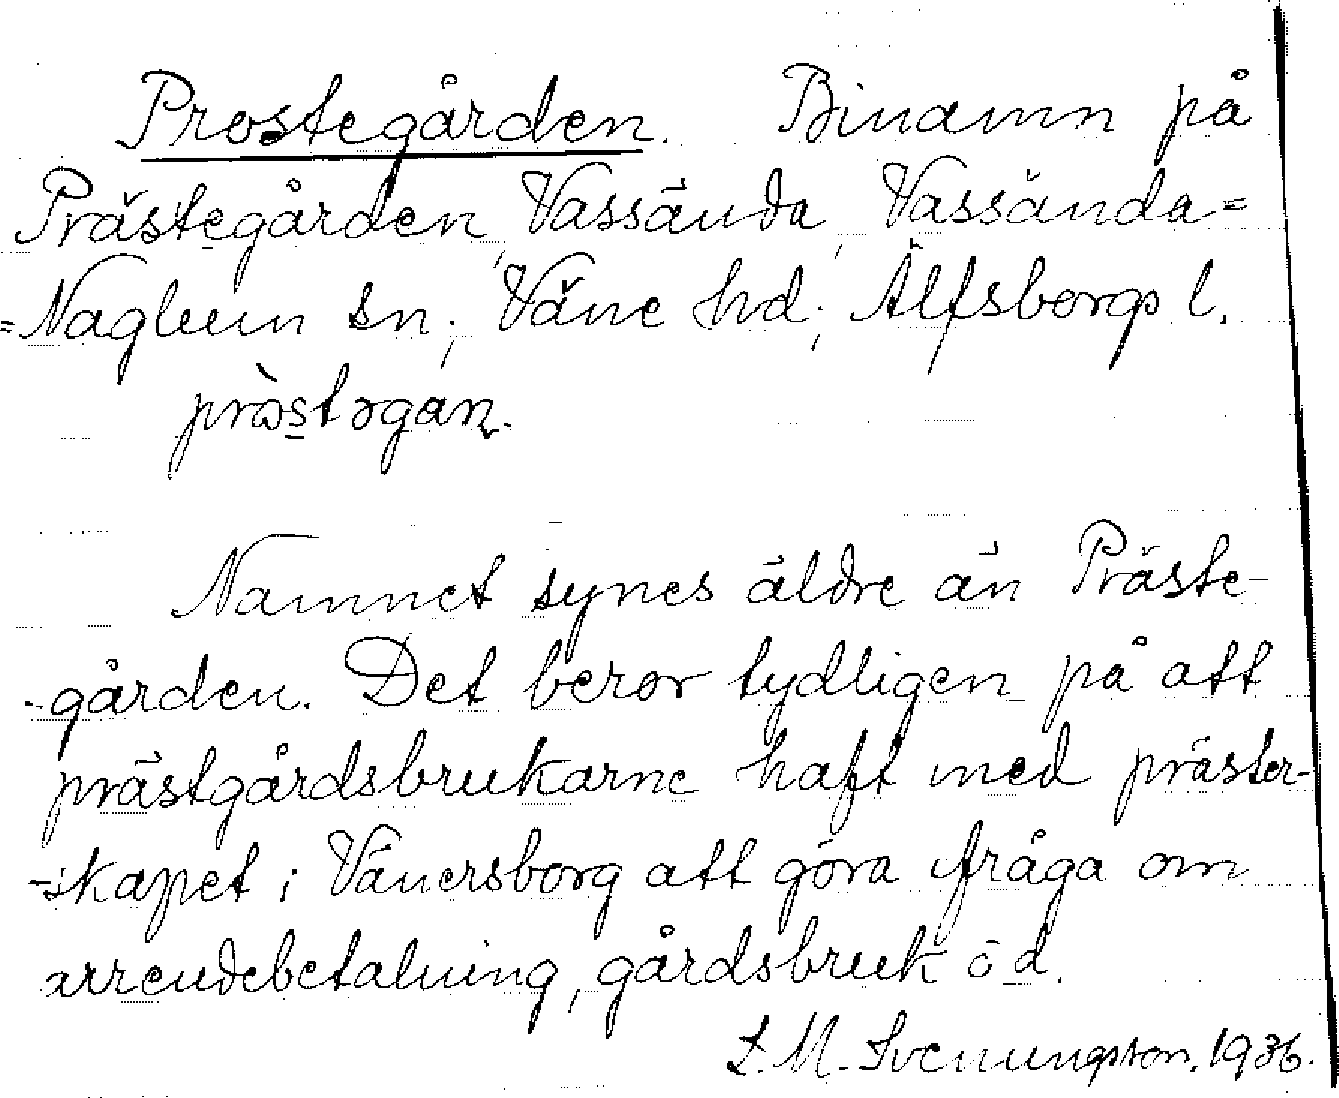 Prostegården. Binamn på
Prästegården, Vassända, Vassända=
=Naglum sn., Väne hd., Älfsborgs l.
pròstəgan.
Namnet synes äldre än Präste-
-gården. Det beror tydligen på att
prästgårdsbrukarne haft med präster-
-skapet i Vänersborg att göra ifråga om
arrendebetalning, gårdsbruk o d.
L. M. Svenungsson. 1936.